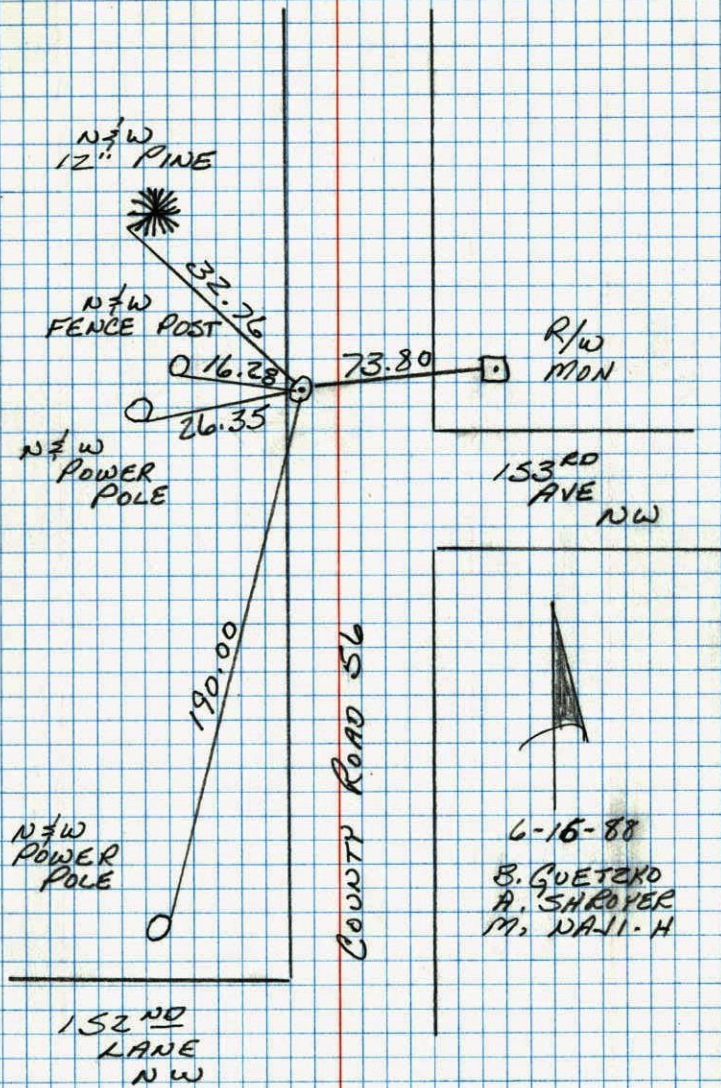 N & W
12" PINE
32.76
N & W
FENCE POST
16.28
73.80
R/W
MON
26.35
N & W
POWER
POLE
153RD
AVE
NW
190.00
COUNTY ROAD 56
N & W
POWER
POLE
6-16-88
B. GUETZKO
A. SHROYER
M.
152ND
LANE
NW